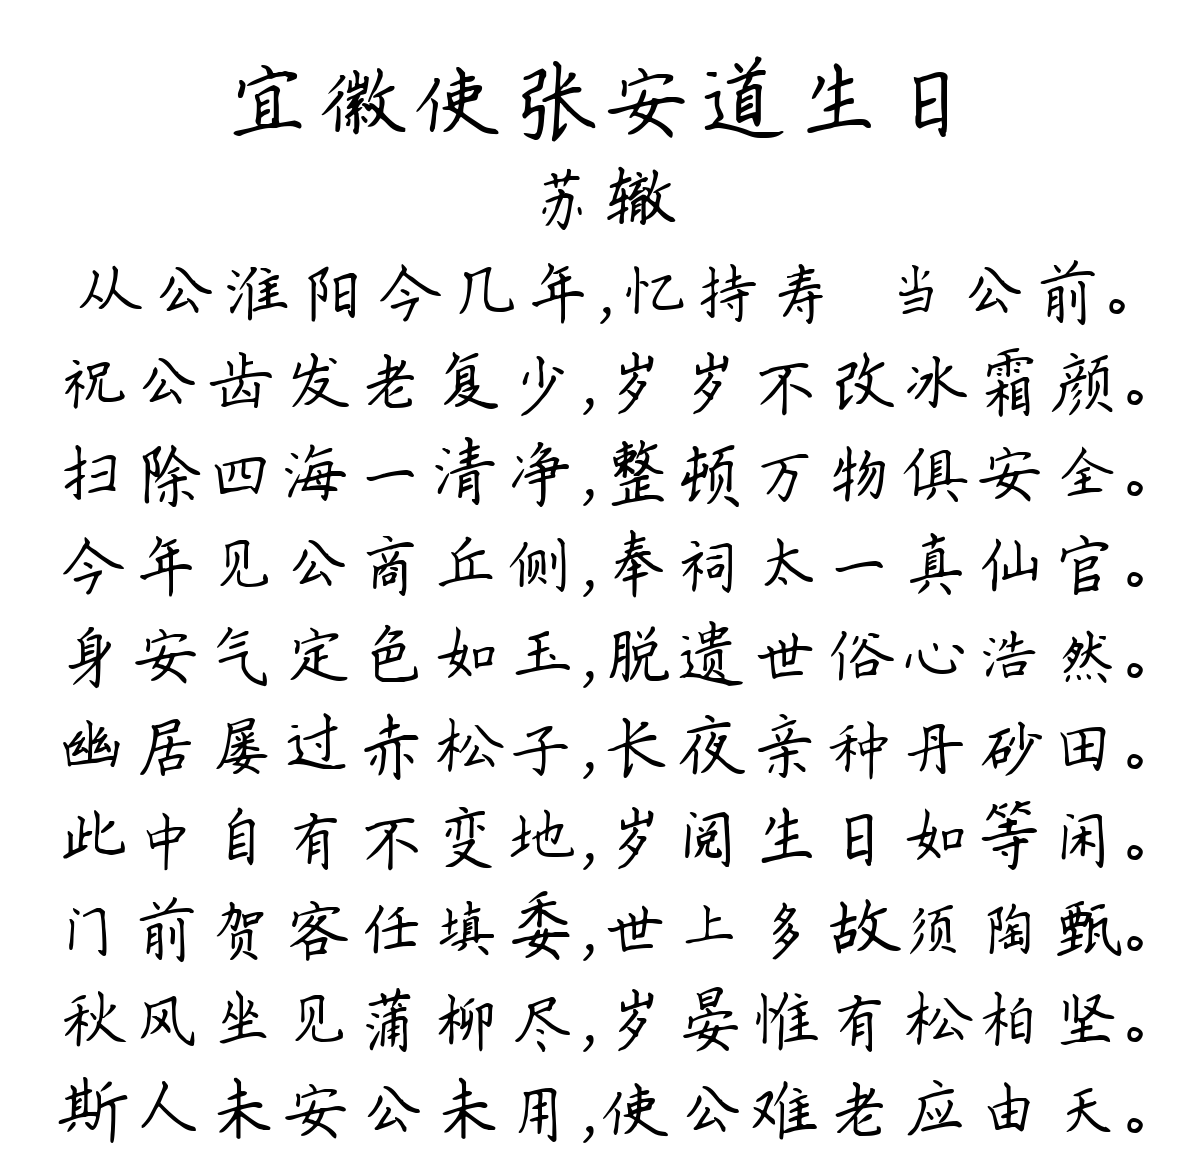 宜徽使张安道生日
苏辙
从公淮阳今几年,忆持寿 当公前。
祝公齿发老复少,岁岁不改冰霜颜。
扫除四海一清净,整顿万物俱安全。
今年见公商丘侧,奉祠太一真仙官。
身安气定色如玉,脱遗世俗心浩然。
幽居屡过赤松子,长夜亲种丹砂田。
此中自有不变地,岁阅生日如等闲。
门前贺客任填委,世上多故须陶甄。
秋风坐见蒲柳尽,岁晏惟有松柏坚。
斯人未安公未用,使公难老应由天。